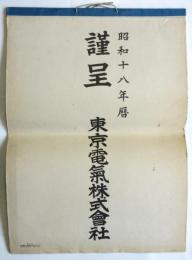 昭和十八年暦
謹呈
東京電氣株式會社